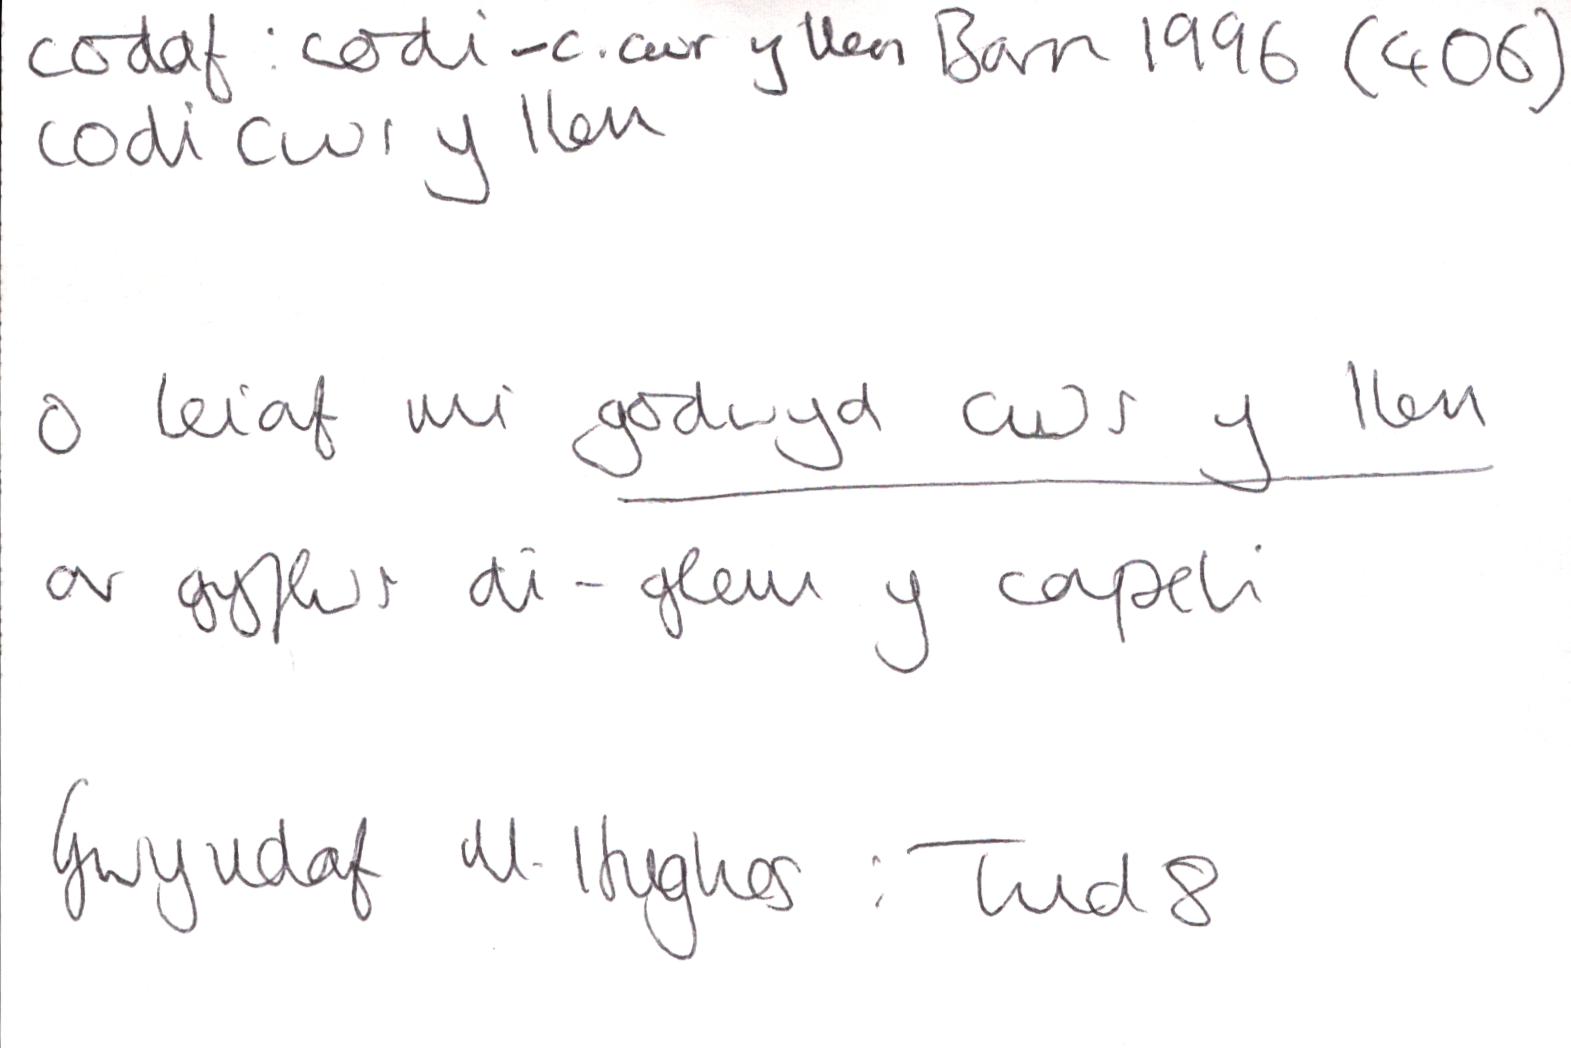 codaf : codi - c. cwr y llen Barn 1996 (406)
codi cwr y llen
o leiaf mi godwyd cwr y llen
ar gyflwr di-glem y capeli
Gwyndaf M. Hughes : Tud 8